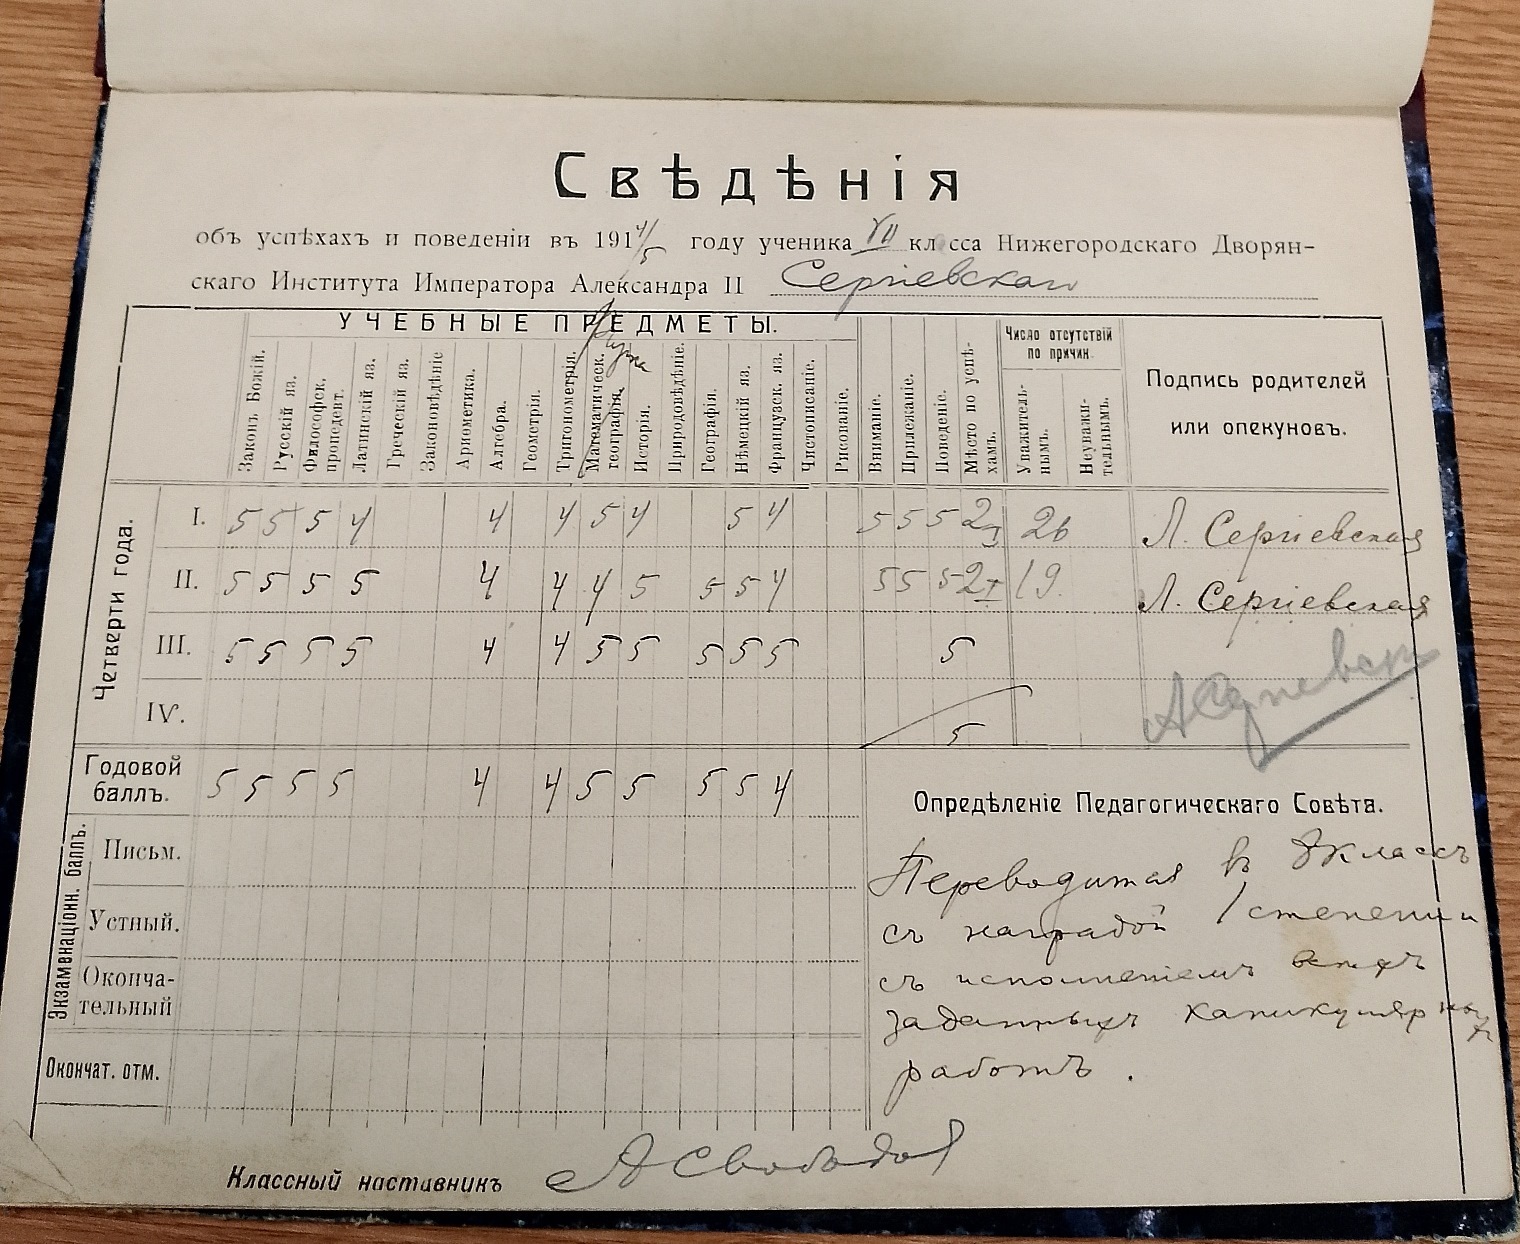 Свѣдѣнія
объ успѣхахъ и поведеніи въ 1914/5 году ученика VII класса Нижегородскаго Дворян-
скаго Института Императора Александра II Сергіевскаго
УЧЕБНЫЕ ПРЕДМЕТЫ.
Законъ Божій.
Русскій яз.
Философск. пропедевт.
Латинскій яз.
Греческій яз.
Законовѣдѣніе
Ариѳметика.
Алгебра.
Геометрія.
Тригонометрія.
Математическ. географія.
Исторія.
Природовѣдѣніе.
Географія.
Нѣмецкій яз.
Французск. яз.
Чистописаніе.
Рисованіе.
Вниманіе.
Прилежаніе.
Поведеніе.
Мѣсто по успѣ-
хамъ.
Число отсутствій
по причин.
Уважитель-
нымъ.
Неуважи-
тельнымъ.
Подпись родителей
или опекуновъ.
Четверти года.
I. 5 5 5 4 4 4 5 4 5 4 5 5 5 2I 26 Л. Сергіевская
II. 5 5 5 5 4 4 4 5 5 5 4 5 5 5 2I 19. Л. Сергіевская
III. 5 5 5 5 4 4 5 5 5 5 5 5
IV. 5
Годовой
баллъ. 5 5 5 5 4 4 5 5 5 5 4
Экзаменаціонн. баллъ.
Письм.
Устный.
Оконча-
тельный
Окончат. отм.
Опредѣленіе Педагогическаго Совѣта.
Переводится въ 8 классъ
съ наградой I степени и
съ исполненіемъ всѣхъ
заданныхъ каникулярныхъ
работъ.
Классный наставникъ